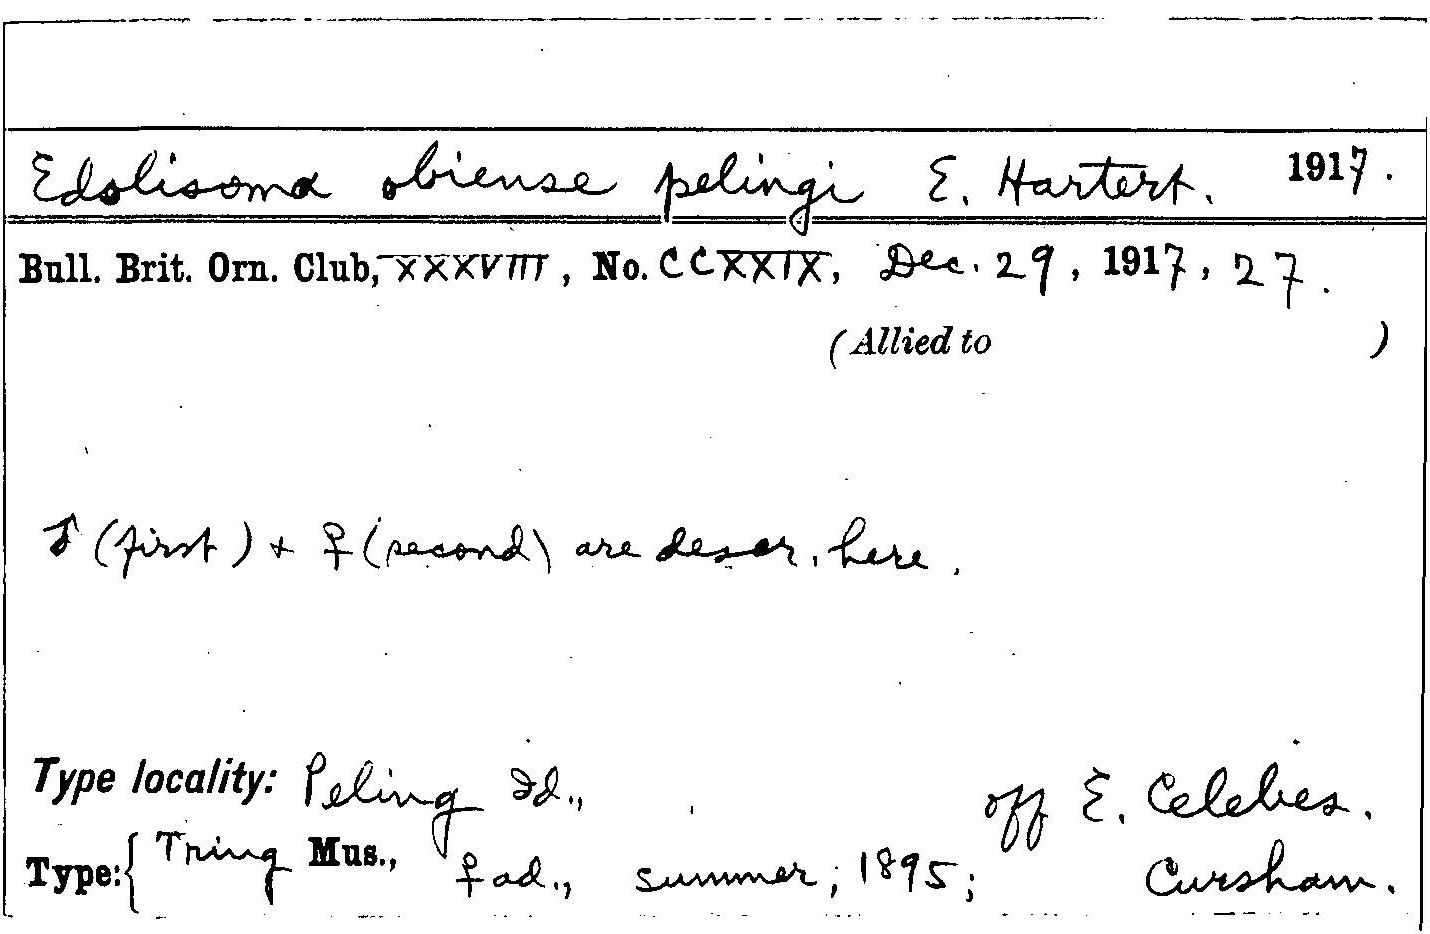 Edolisoma obiense pelingi E. Hartert. 1917.
Bull. Brit. Orn. Club, XXXVIII, No. CCXXIX, Dec. 29, 1917, 27.
(Allied to )
♂ (first) + ♀ (second) are descr. here.
Type locality: Peling Id., off E. Celebes.
Type: { Tring Mus., ♀ ad., summer, 1895; Cursham.